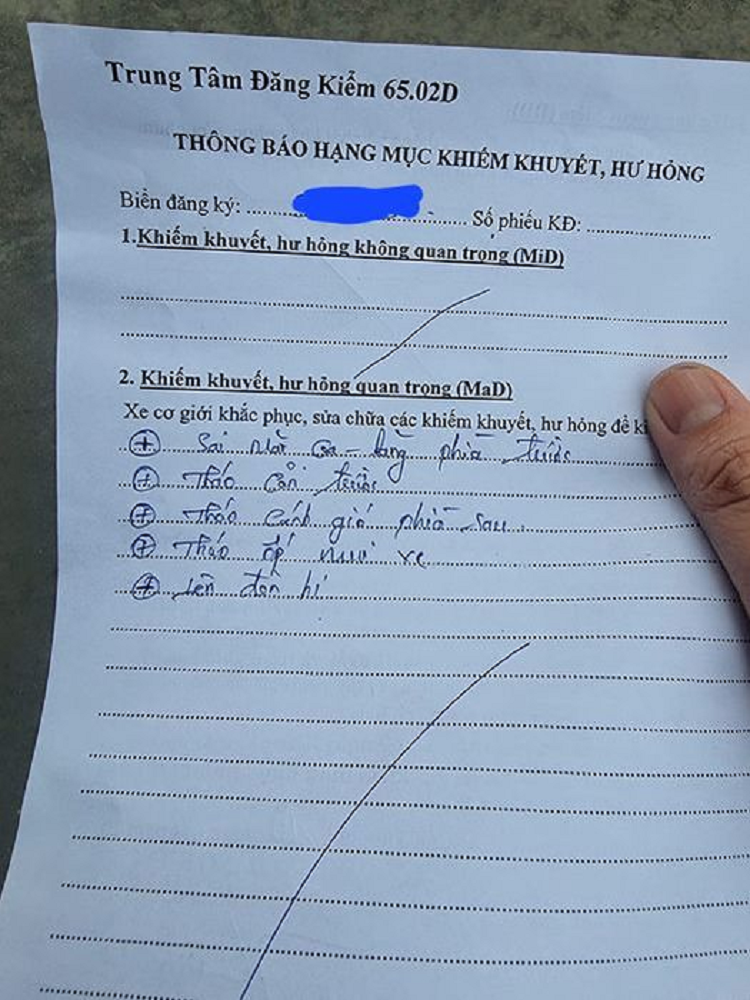 Trung Tâm Đăng Kiểm 65.02D
THÔNG BÁO HẠNG MỤC KHIẾM KHUYẾT, HƯ HỎNG
Biển đăng ký: ........................ Số phiếu KĐ: ....................
1.Khiếm khuyết, hư hỏng không quan trọng (MiD)
2. Khiếm khuyết, hư hỏng quan trọng (MaD)
Xe cơ giới khắc phục, sửa chữa các khiếm khuyết, hư hỏng để
+ Sai mặt Ga-lăng phía trước
+ Tháo cản trước
+ Tháo cánh gió phía sau
+ Tháo ốp xe
+ đèn